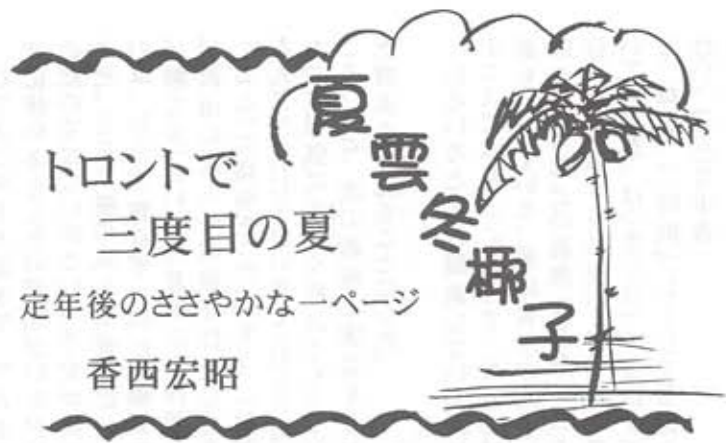 夏雲冬椰子
トロントで
三度目の夏
定年後のささやかな一ページ
香西宏昭